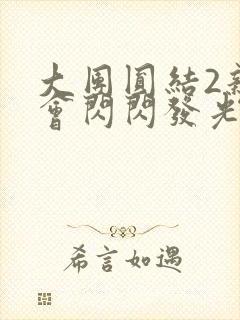 大團圓結2新
會閃閃發光
希言如遇